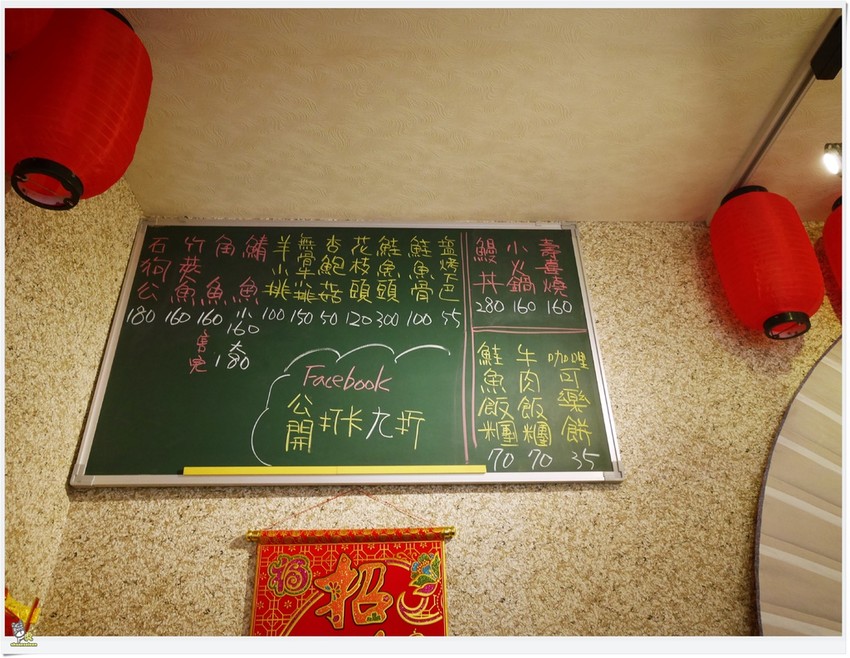 壽喜燒 160
小火鍋 160
鰻丼 280
塩烤下巴 55
鮭魚骨 100
鮭魚頭 300
花枝頭 120
杏鮑菇 50
無骨牛小排 150
羊小排 100
鯖魚 小160 大180
角魚 160 售完
竹莢魚 160
石狗公 180
咖哩可樂餅 35
牛肉飯糰 70
鮭魚飯糰 70
Facebook
公開打卡九折
福
招